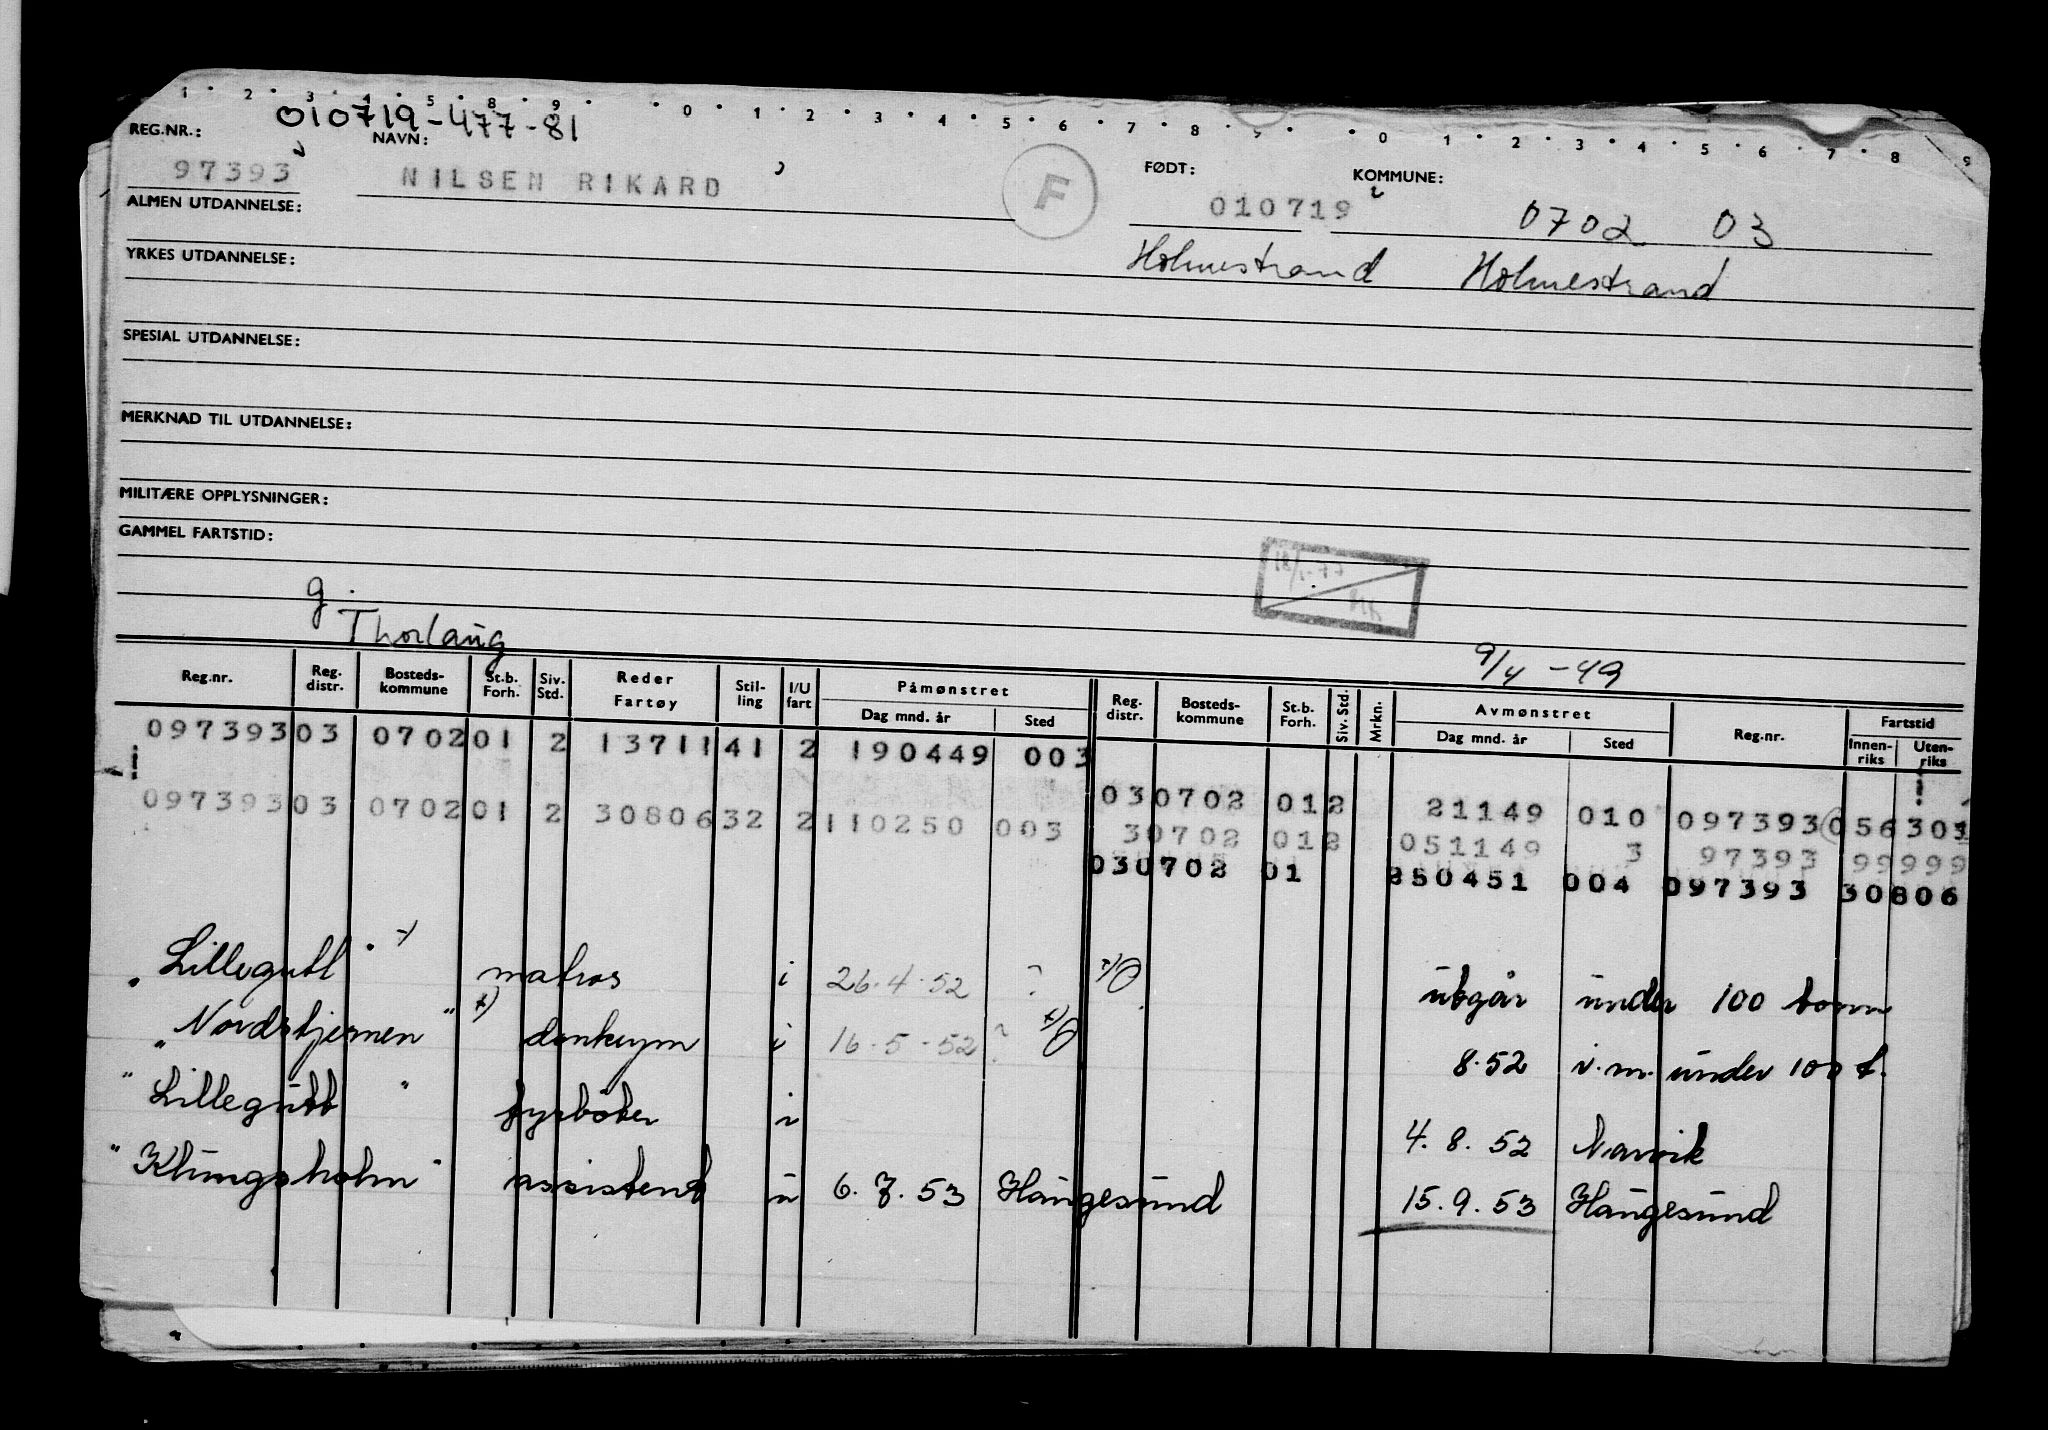 1 2 3 4 5 8 9 0 1 2 3 4 5 6 7 8 9 0 1 2 3 4 5 6 7 8 9
010719-477-81
REG.NR.: NAVN: FØDT: KOMMUNE:
97393 NILSEN RIKARD F 010719 0702 03
ALMEN UTDANNELSE:
Holmestrand Holmestrand
YRKES UTDANNELSE:
SPESIAL UTDANNELSE:
MERKNAD TIL UTDANNELSE:
MILITÆRE OPPLYSNINGER:
GAMMEL FARTSTID:
18/1-77
g. Thorlaug 9/4-49
Reg.nr. Reg. distr. Bosteds-kommune St.b. Forh. Siv. Std. Reder Fartøy Stil-ling I/U fart Påmønstret Dag mnd. år Sted Reg. distr. Bosteds-kommune St.b. Forh. Siv. Std. Mrkn. Avmønstret Dag mnd. år Sted Reg.nr. Fartstid Innen-riks Uten-riks
097393 03 0702 01 2 13711 41 2 190449 003
030702 012 21149 010 097393 056301
097393 03 0702 01 2 30806 32 2 110250 003
30702 012 051149 3 97393 99999
030702 01 250451 004 097393 30806
"Lillegutt" x) matros i 26.4.52 ? x) utgår under 100 tonn
"Nordstjernen" x) donkeym i 16-5-52 ? x) 8.52 i.m. under 100 t.
"Lillegutt" fyrbøter i 4.8.52 Narvik
"Klungsholm" assistent u 6.7.53 Haugesund 15.9.53 Haugesund